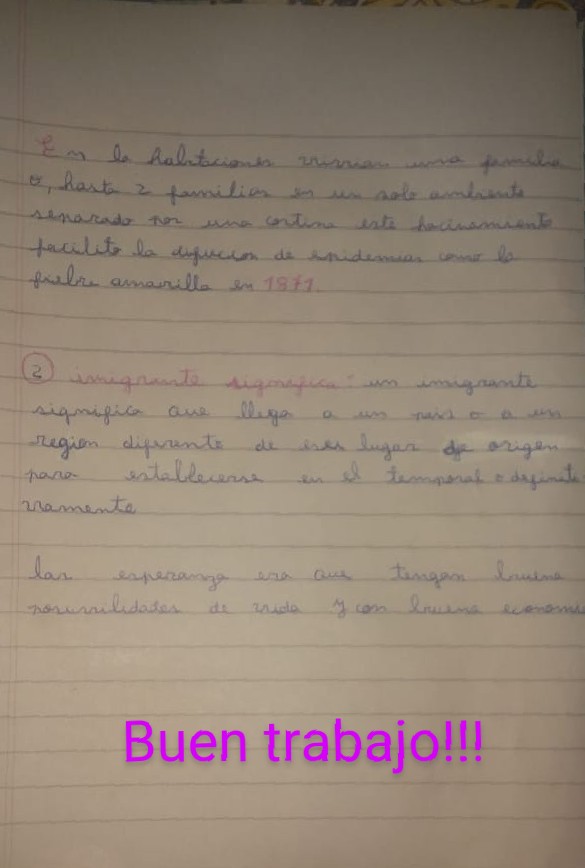 En la habitaciones vivian una familia
o, hasta 2 familias en un solo ambiente
separado por una cortina este hacinamiento
facilito la difuccion de epidemias como la
fiebre amarilla en 1871.
2 imigrante significa: un imigrante
significa que llega a un pais o a un
region diferente de lugar de origen
para establecerse en el temporal o definiti
vamente
las esperanza era que tengan buena
posivilidades de vida y con buena economi
Buen trabajo!!!